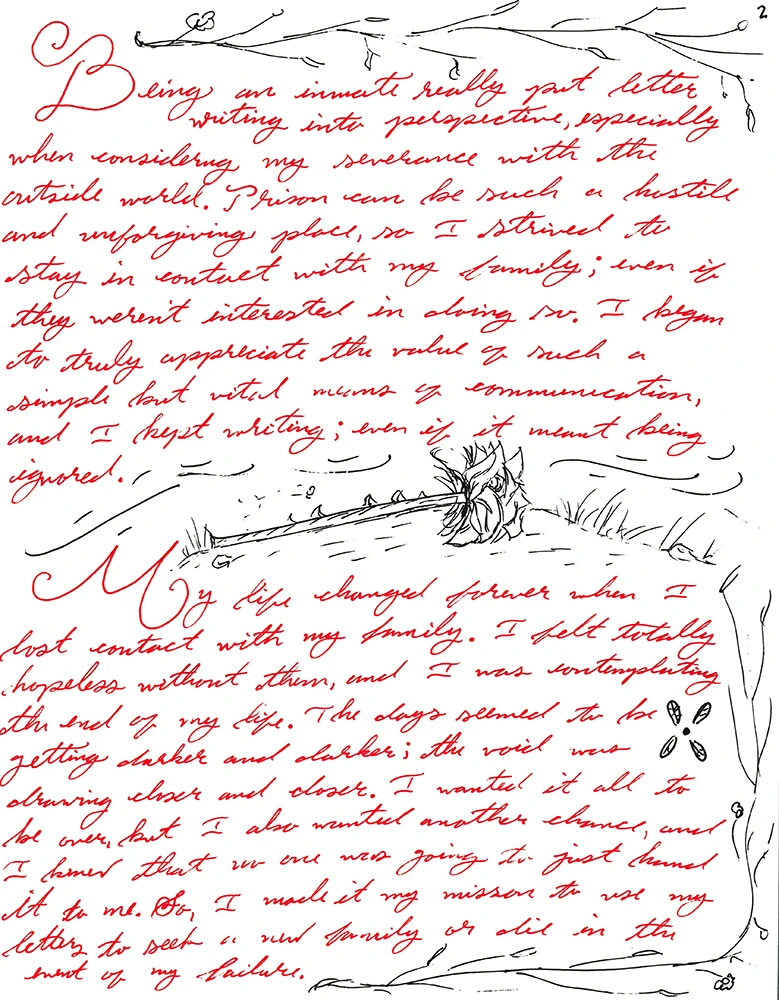 2
Being an inmate really put letter
writing into perspective, especially
when considering my severance with the
outside world. Prison can be such a hostile
and unforgiving place, so I strived to
stay in contact with my family; even if
they weren't interested in doing so. I began
to truly appreciate the value of such a
simple but vital means of communication,
and I kept writing; even if it meant being
ignored.
My life changed forever when I
lost contact with my family. I felt totally
hopeless without them, and I was contemplating
the end of my life. The days seemed to be
getting darker and darker; the void was
drawing closer and closer. I wanted it all to
be over, but I also wanted another chance, and
I knew that no one was going to just hand
it to me. So, I made it my mission to use my
letters to seek a new family or die in the
event of my failure.